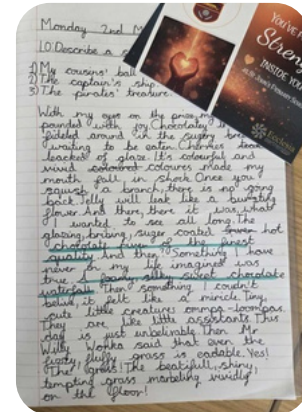 Monday 2nd M
LO: Describe a s
1) My cousins' ball
2) The captain's ship
3) The pirates' treasure
With my eyes on the prize, my
pounded with joy. Chocolatey
fideled around in the sugery bre
waiting to be eaten. Cherries
leacked of glaze. It's colourful and
vivid coloures made my
mouth fall in shock. Once you
squash a branch, there is no going
back. Jelly will leak like a bursting
flower. And there, there it was what
I wanted to see all long. The
glazing, bribing, suger coated hot
chocolate river of the finest
quality. And then? Something I have
never in my life imagined was
true. A foamy, silky, sweet chocolate
waterfall. Then something I couldn't
belive, it felt like a miricle. Tiny,
cute little creatures ommpa-loompas.
They are like little assistants. This
day is just unbelivable. Then Mr
Willy Wonka said that even the
fuzzy, fluffy grass is eadable. Yes!
The grass! The beatifull, shiny,
tempting grass marbeling vividly
on the floor!
I'VE FO
Strengt
INSIDE YOU
Ecclesia